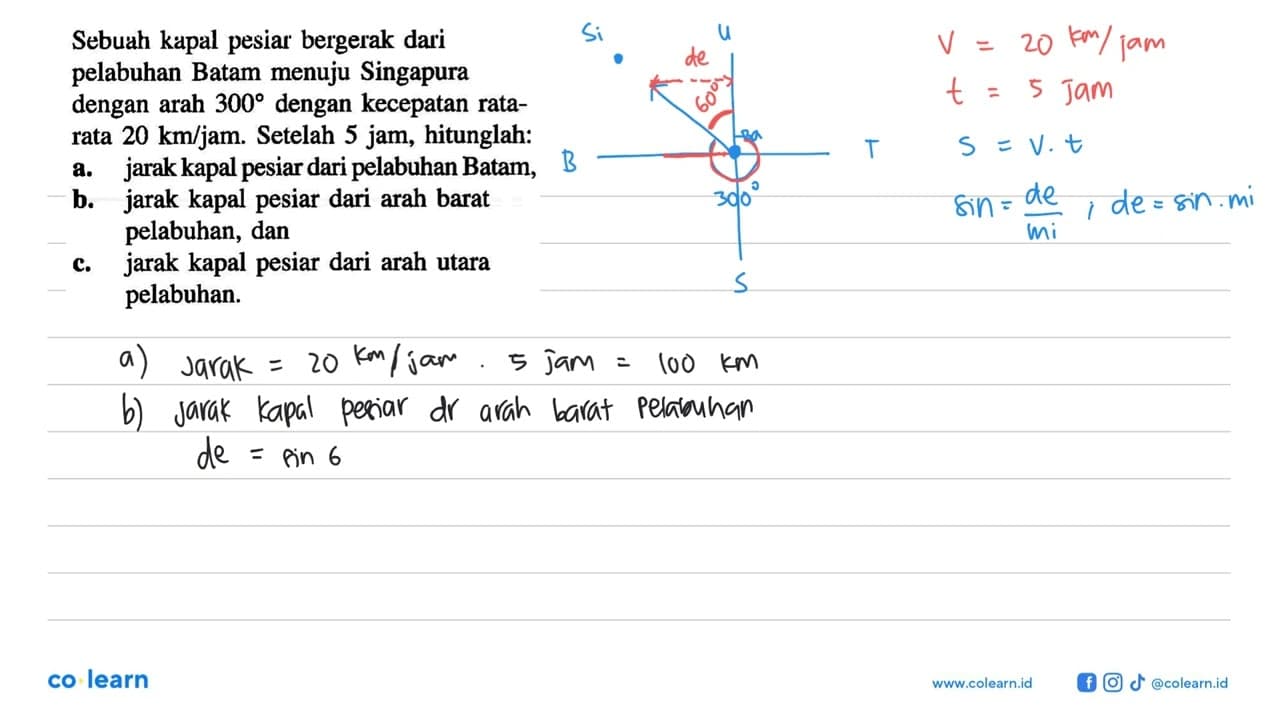 Sebuah kapal pesiar bergerak dari
pelabuhan Batam menuju Singapura
dengan arah 300° dengan kecepatan rata-
rata 20 km/jam. Setelah 5 jam, hitunglah:
a. jarak kapal pesiar dari pelabuhan Batam,
b. jarak kapal pesiar dari arah barat
pelabuhan, dan
c. jarak kapal pesiar dari arah utara
pelabuhan.
Si
U
de
60°
Ba
B
T
300°
S
V = 20 km/jam
t = 5 jam
S = V. t
sin = de/mi ; de = sin . mi
a) Jarak = 20 km/jam . 5 jam = 100 km
b) Jarak kapal pesiar dr arah barat Pelabuhan
de = sin 6
co learn
www.colearn.id
@colearn.id